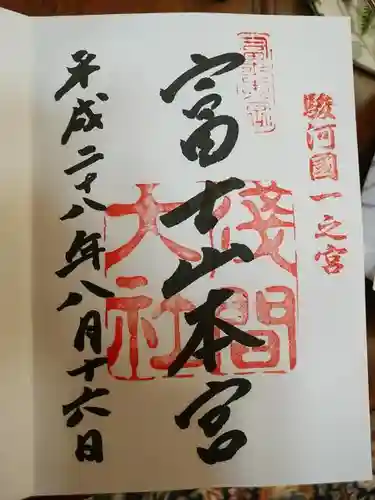 駿河國一之宮
富士山本宮
淺間大社
平成二十八年八月十六日